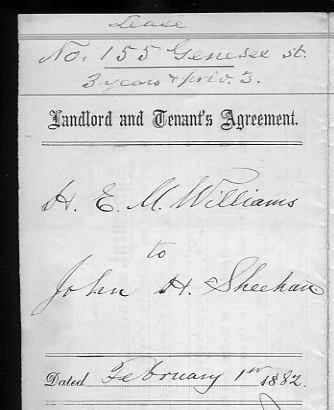 Lease
No. 155 Genesee st.
3 years & priv. 3.
Landlord and Tenant's Agreement.
H. E. M. Williams
to
John H. Sheehan
Dated February 1st 1882.